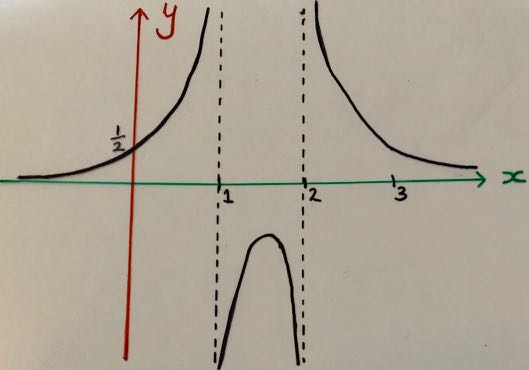 y
1/2
1 2 3 x